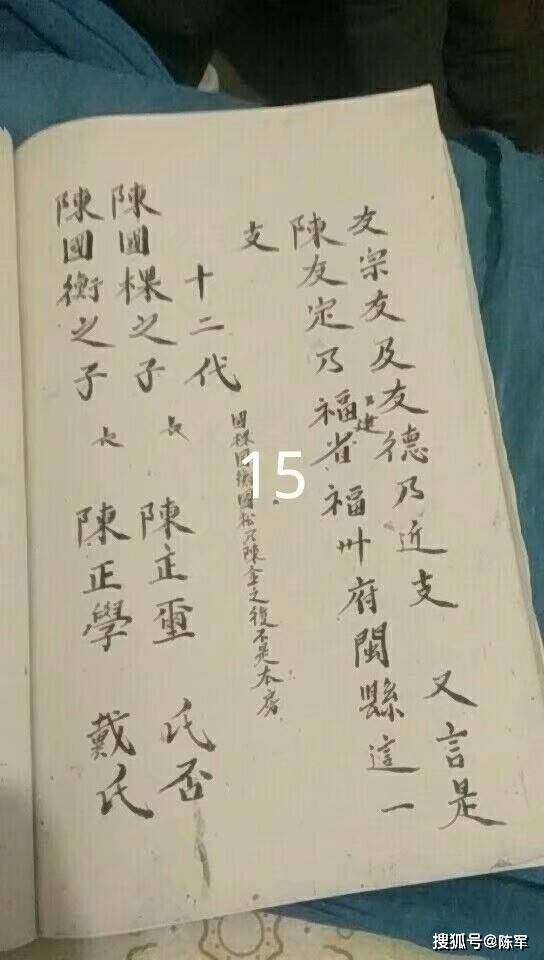 友宗友及友德乃近支 又言是
陳友定乃福建省福州府閩縣這一
支
國棵國衡國松乃陳金之後不是本房
十二代
陳國棵之子 長 陳正 氏否
陳國衡之子 長 陳正學 戴氏
15
搜狐号@陈军